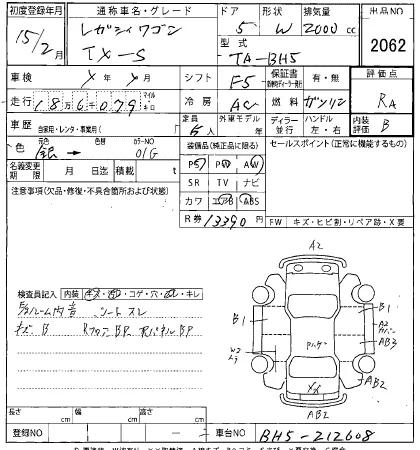 初度登録年月
通称車名・グレード
ドア
形状
排気量
出品NO
15/2月
レガシィワゴン
TX-S
5
W
2000
cc
2062
型式
TA-BH5
車検
年
月
シフト
F5
保証書
有・無
評価点
走行
186079
マイル
キロ
冷房
AC
燃料
ガソリン
RA
車歴
自家用・レンタ・事業用( )
定員
5人
外車モデル
年
ディーラー
並行
ハンドル
左・右
内装
評価
B
色
元色
銀
色替
カラーNO
01G
装備品(純正品に限る)
セールスポイント(正常に機能するもの)
名義変更
期限
月 日迄
積載
t
PS
PW
AW
SR
TV
ナビ
カワ
エアB
ABS
注意事項(欠品・修復・不具合箇所および改造)
R券
13390
円
FW
キズ・ヒビ割・リペア跡・X要
検査員記入
内装
コゲ・穴
キレ
シートスレ
A2
B1
B1
A2
AB3
AB2
XX
AB2
長さ
cm
幅
cm
高さ
cm
登録NO
車台NO
BH5-212608